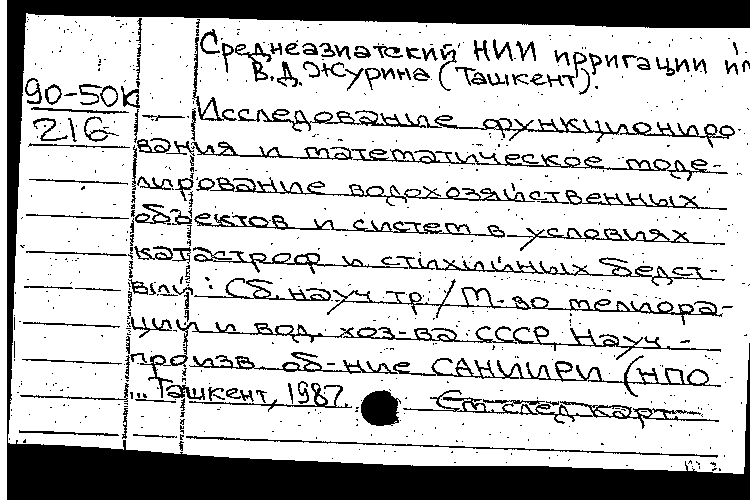 Среднеазиатский НИИ ирригации им
В.Д. Журина (Ташкент).
90-50К
21G
Исследование функциониро
вания и математическое моде-
лирование водохозяйственных
объектов и систем в условиях
катастроф и стихийных бедст-
вий : Сб. науч. тр. / М-во мелиора-
ции и вод. хоз-ва СССР, Науч.-
произв. об-ние САНИИРИ (НПО
... Ташкент, 1987.
См. след. карт.